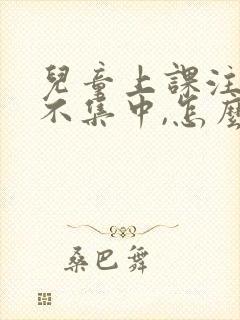 兒童上課注
不集中,怎麼
桑巴舞